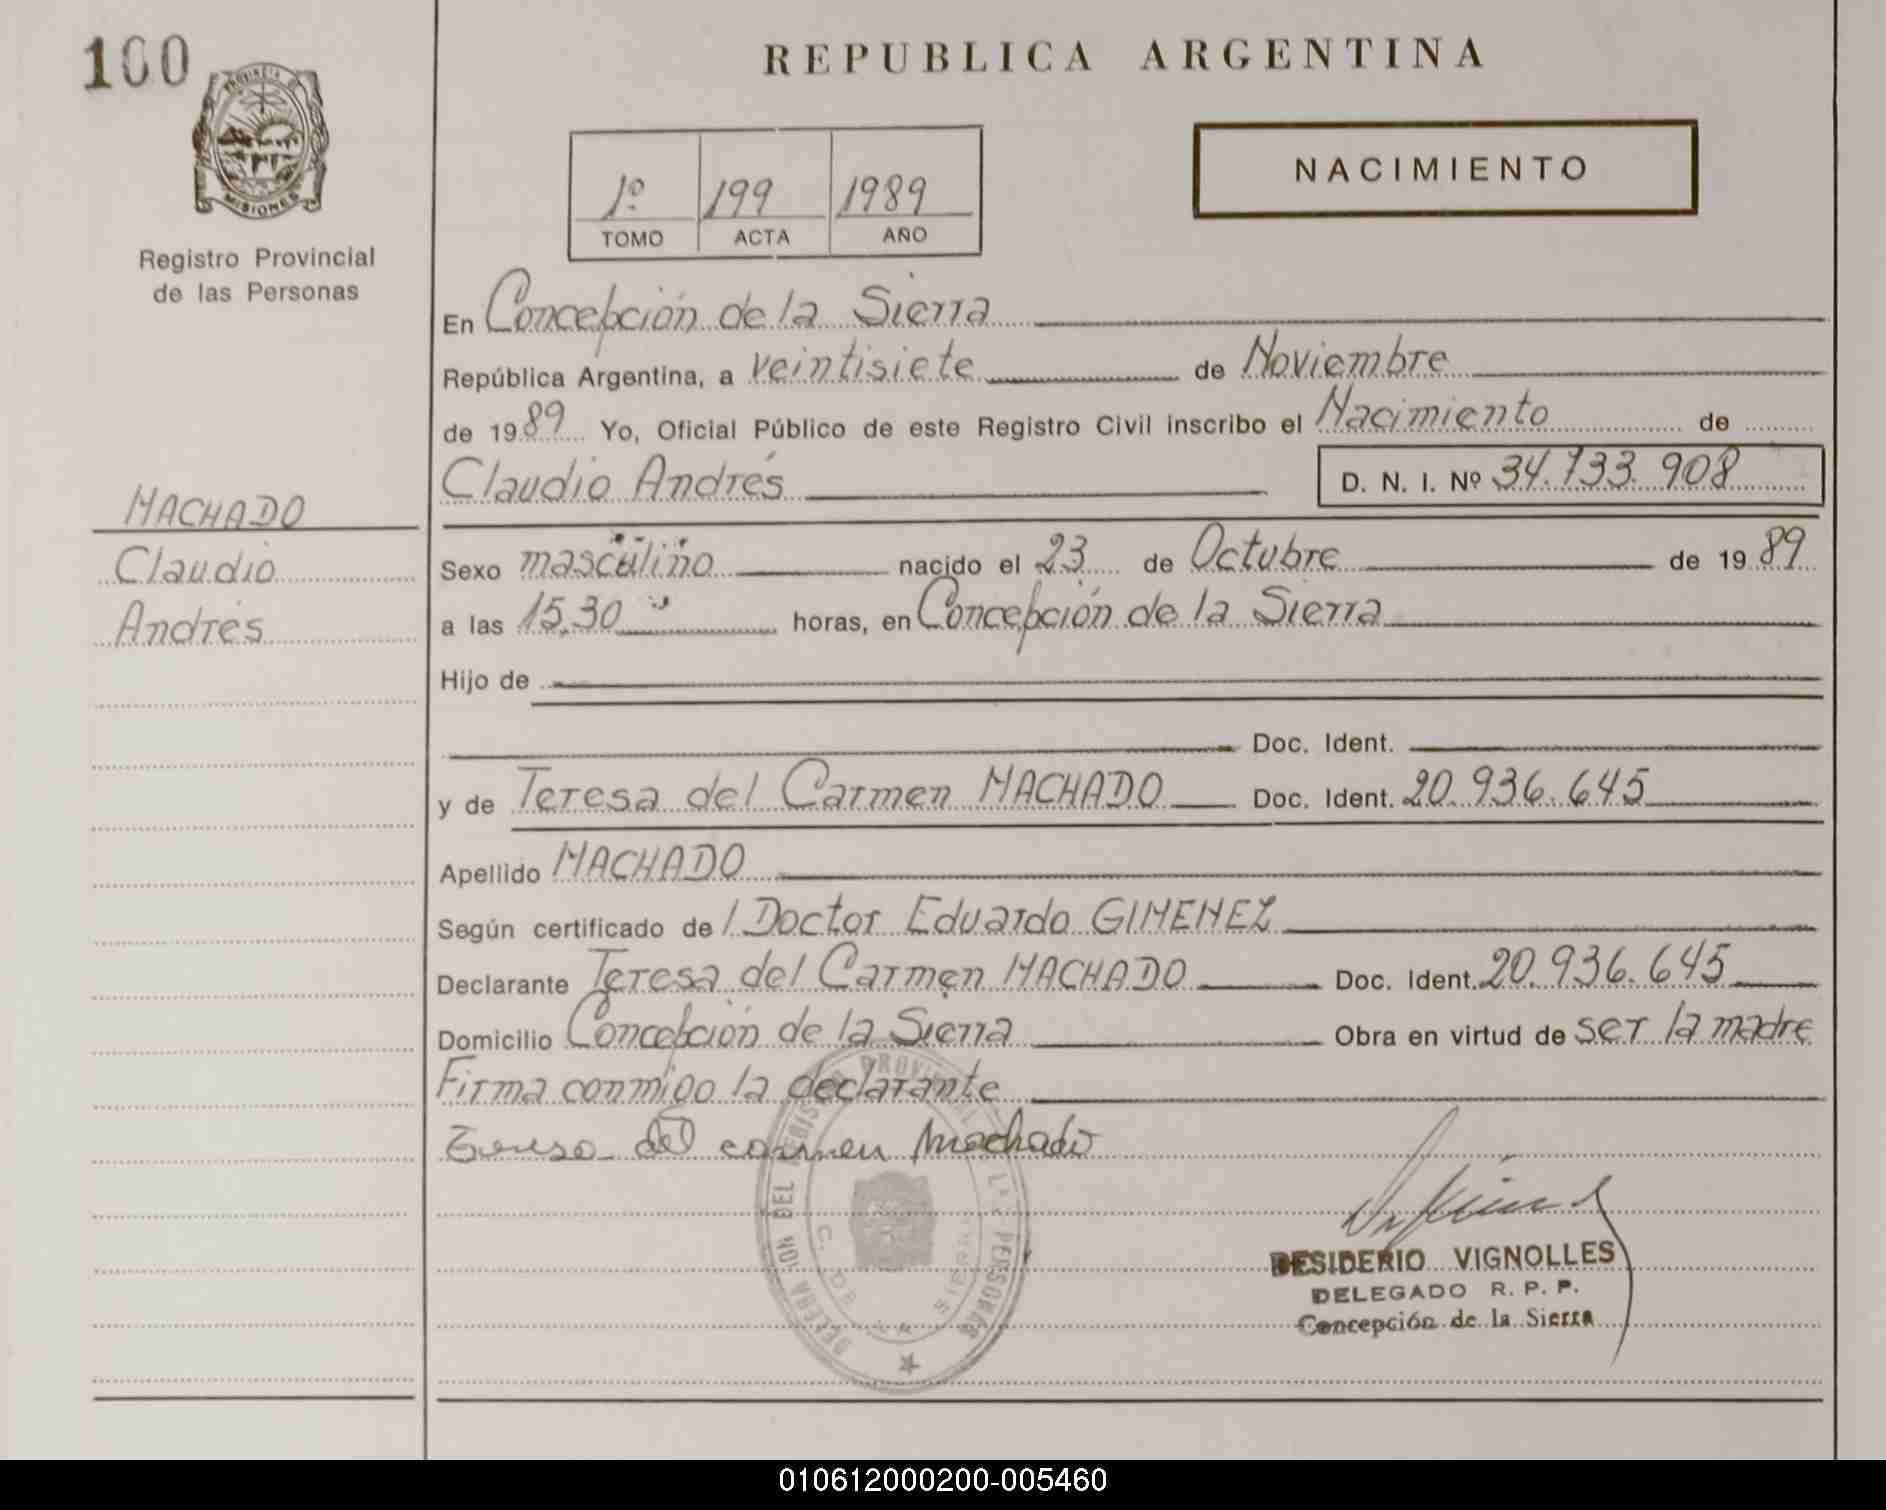 100
PROVINCIA DE
MISIONES
Registro Provincial
de las Personas
REPUBLICA ARGENTINA
1º 199 1989
TOMO ACTA AÑO
NACIMIENTO
En Concepción de la Sierra
República Argentina, a veintisiete de Noviembre
de 1989 Yo, Oficial Público de este Registro Civil inscribo el Nacimiento de
Claudio Andrés D. N. I. Nº 34.733.908
MACHADO
Claudio
Andrés
Sexo masculino nacido el 23 de Octubre de 1989
a las 15,30 horas, en Concepción de la Sierra
Hijo de
Doc. Ident.
y de Teresa del Carmen MACHADO Doc. Ident. 20.936.645
Apellido MACHADO
Según certificado de l Doctor Eduardo GIMENEZ
Declarante Teresa del Carmen MACHADO Doc. Ident. 20.936.645
Domicilio Concepción de la Sierra Obra en virtud de ser la madre
Firma conmigo la declarante
Teresa del carmen Machado
DELEGACION DEL REGISTRO PROVINCIAL DE LAS PERSONAS
C. DE LA SIERRA
DESIDERIO VIGNOLLES
DELEGADO R. P. P.
Concepción de la Sierra
010612000200-005460